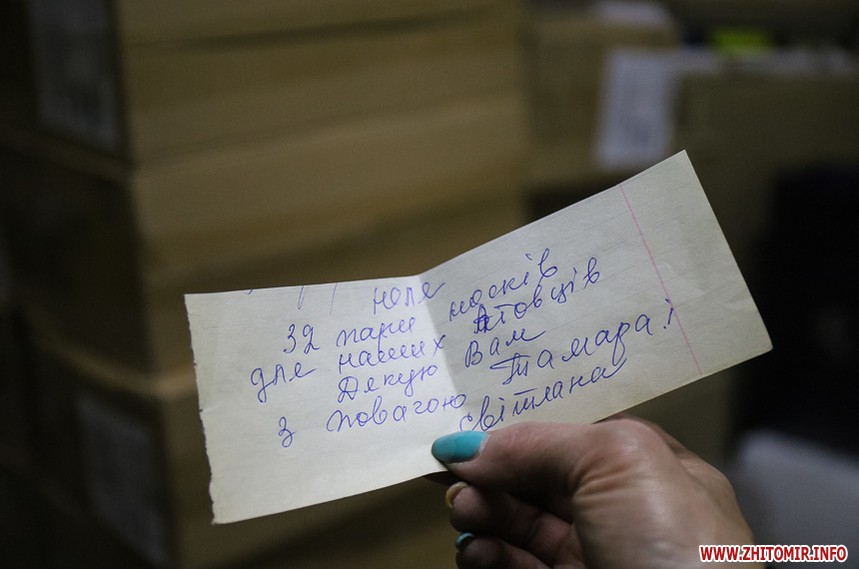 32 пари носків
для наших Атовців
Дякую Вам
Тамара!
З повагою Світлана
WWW.ZHITOMIR.INFO